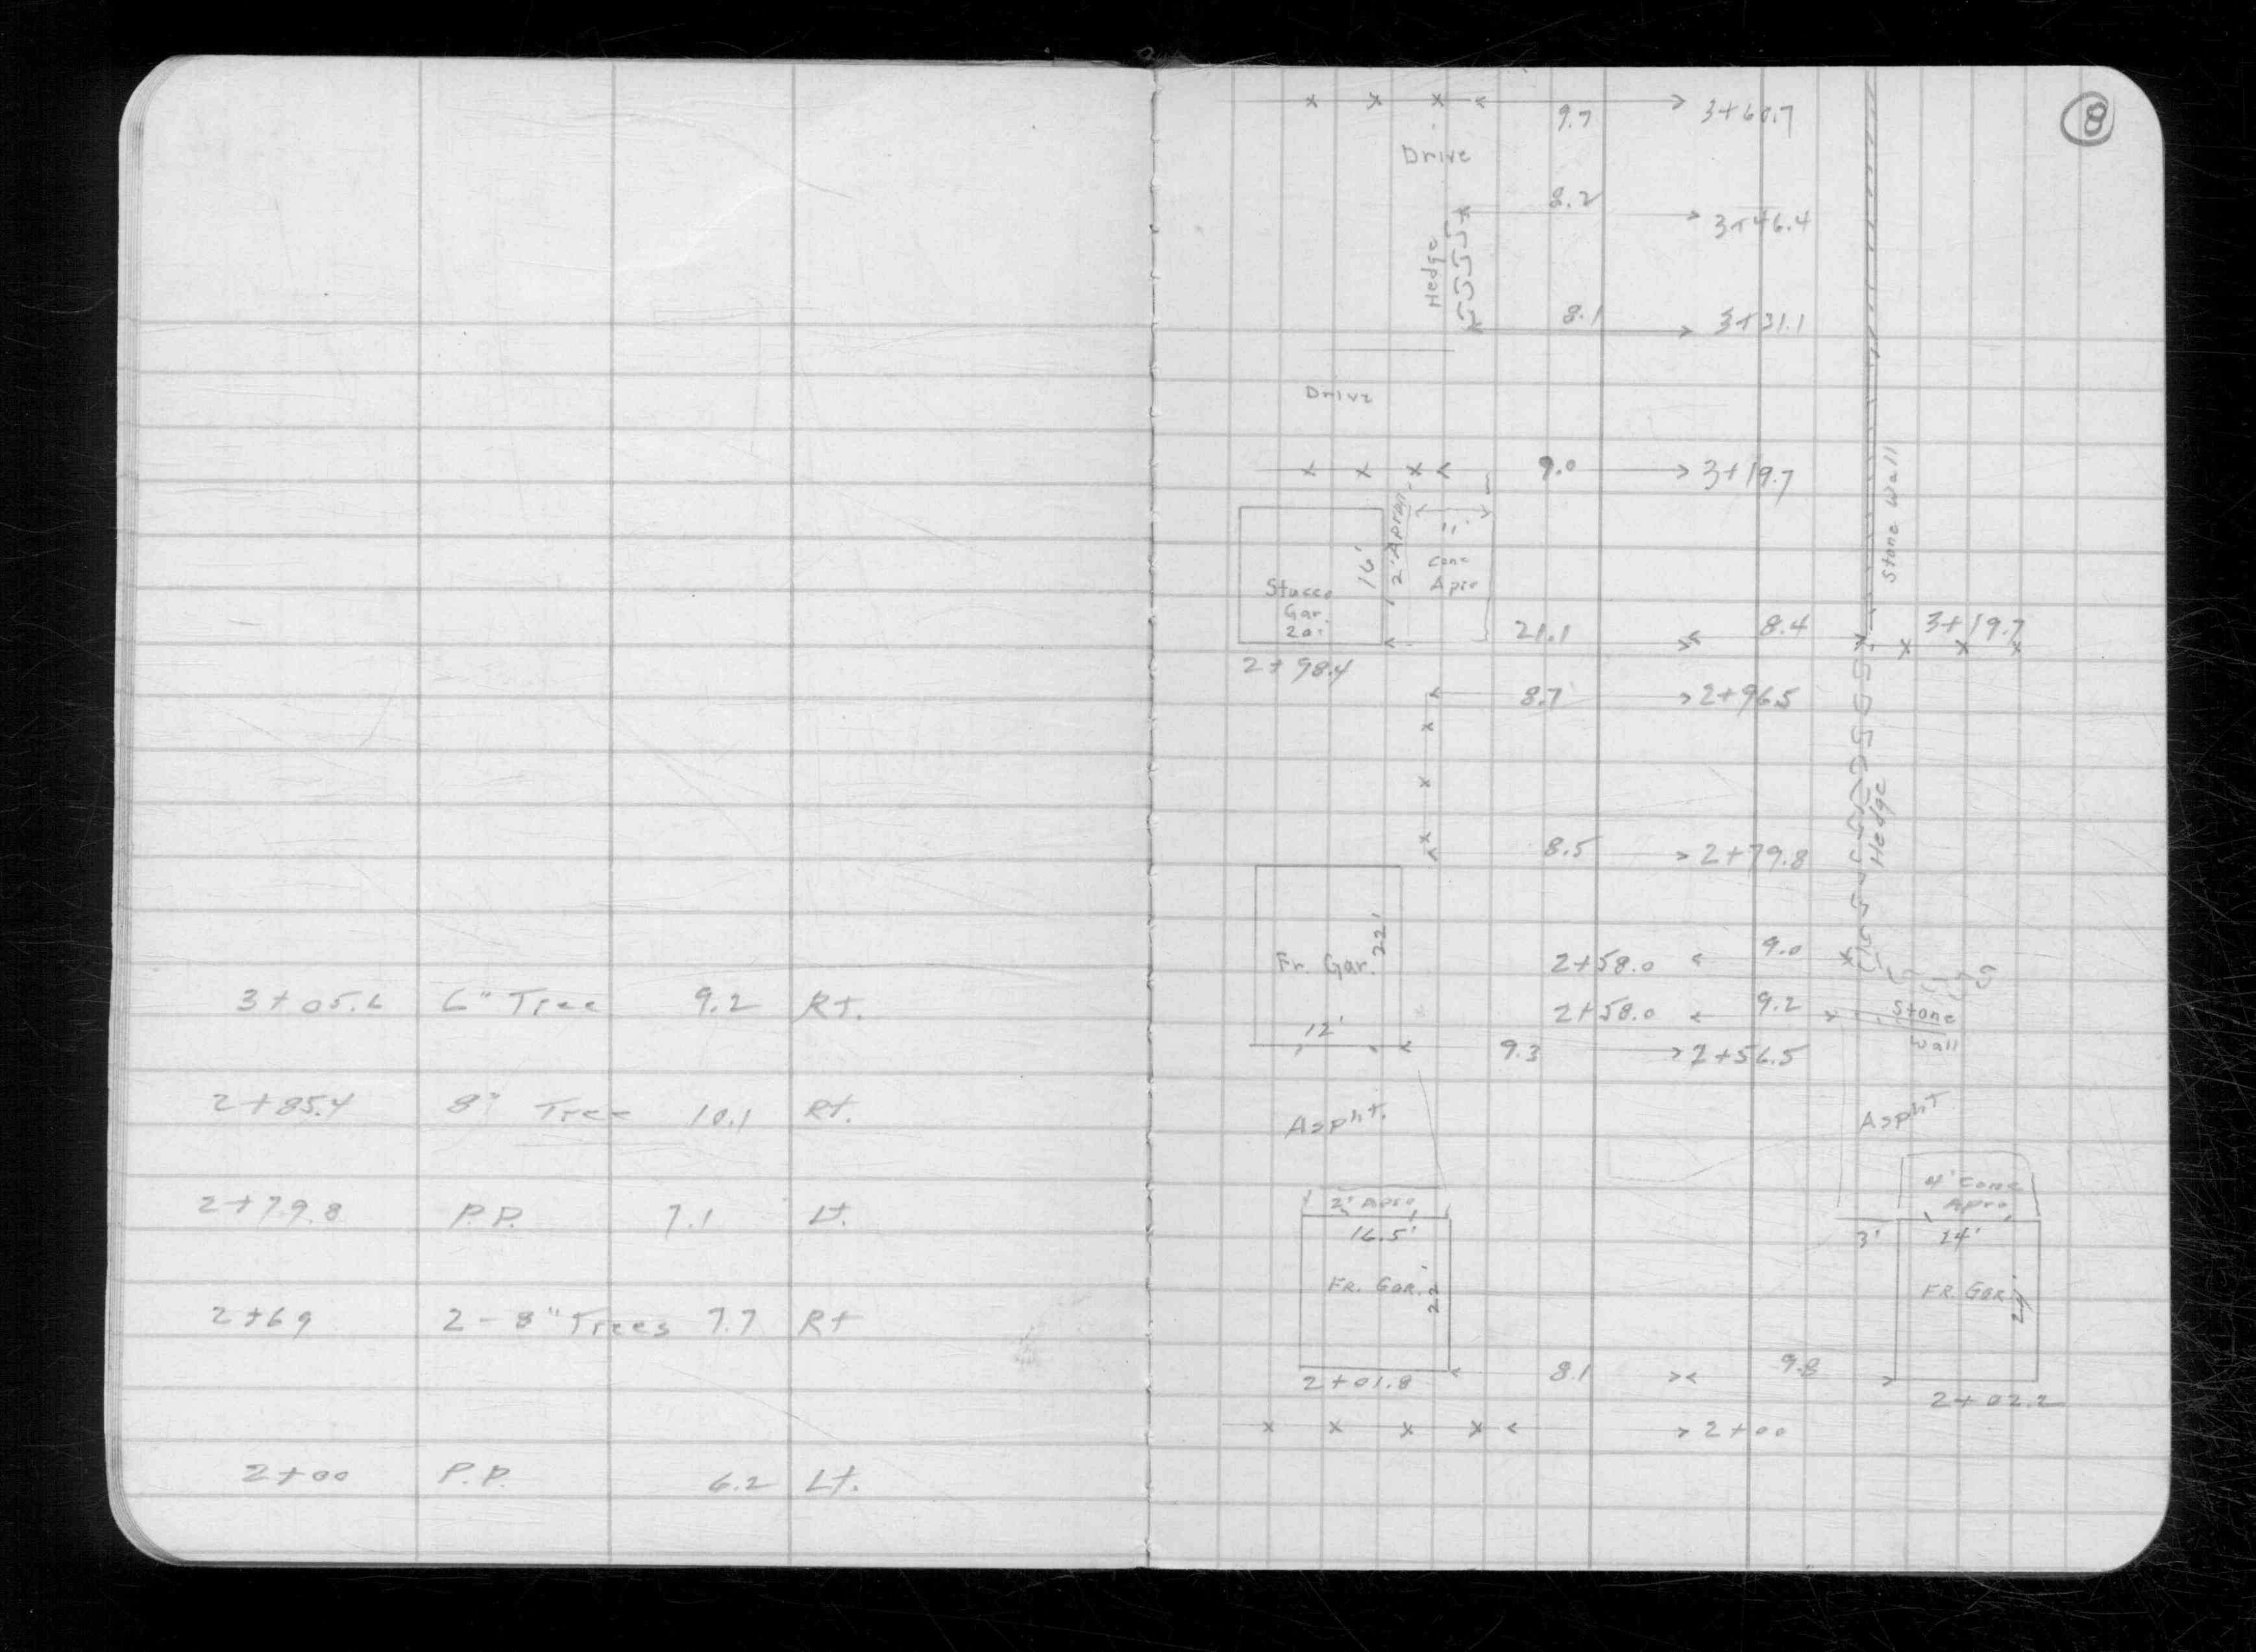 3+05.6 6" Tree 9.2 Rt.
2+85.4 8" Tree 10.1 Rt.
2+79.8 P.P. 7.1 Lt.
2+69 2-8" Trees 7.7 Rt
2+00 P.P. 6.2 Lt.
8
9.7 3+60.7
Drive
8.2 3+46.4
Hedge
8.1 3+31.1
Drive
9.0 3+19.7
Stone Wall
2' Apron
11'
16'
Conc
Apro
Stucco
Gar.
20'
21.1 8.4 3+19.7
2+98.4
8.7 2+96.5
Hedge
8.5 2+79.8
22'
Fr. Gar.
2+58.0 9.0
2+58.0 9.2 Stone
Wall
12'
9.3 2+56.5
Aspht. Aspht
2' Apro 4' Conc
Apro
16.5' 3' 14'
FR. GAR. 22' FR. GAR. 24'
8.1 9.8
2+01.8 2+02.2
2+00